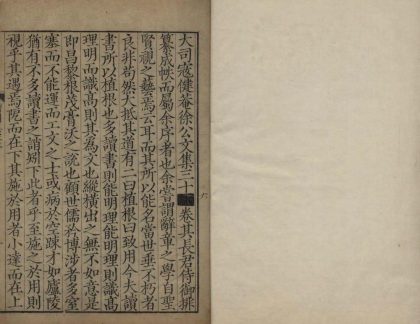 大司寇健菴徐公文集三十 卷其長君侍御排
纂成帙而屬余序者也余嘗謂辭章之學自聖
賢視之藝焉云耳而其所以能名當世垂不朽者
良非苟然大抵其道有二曰植根曰致用今夫讀
書所以植根也多讀書則能明理能明理則識高
理明而識高則其為文也縱橫出之無不如意是
即昌黎根茂膏沃之說也顧世儒於博涉者多窒
塞而不能運而工文之士或病於空踈才如廬陵
猶有不多讀書之謂矧下此者乎至施之於用則
視乎其遇焉阨而在下其施於用者小達而在上